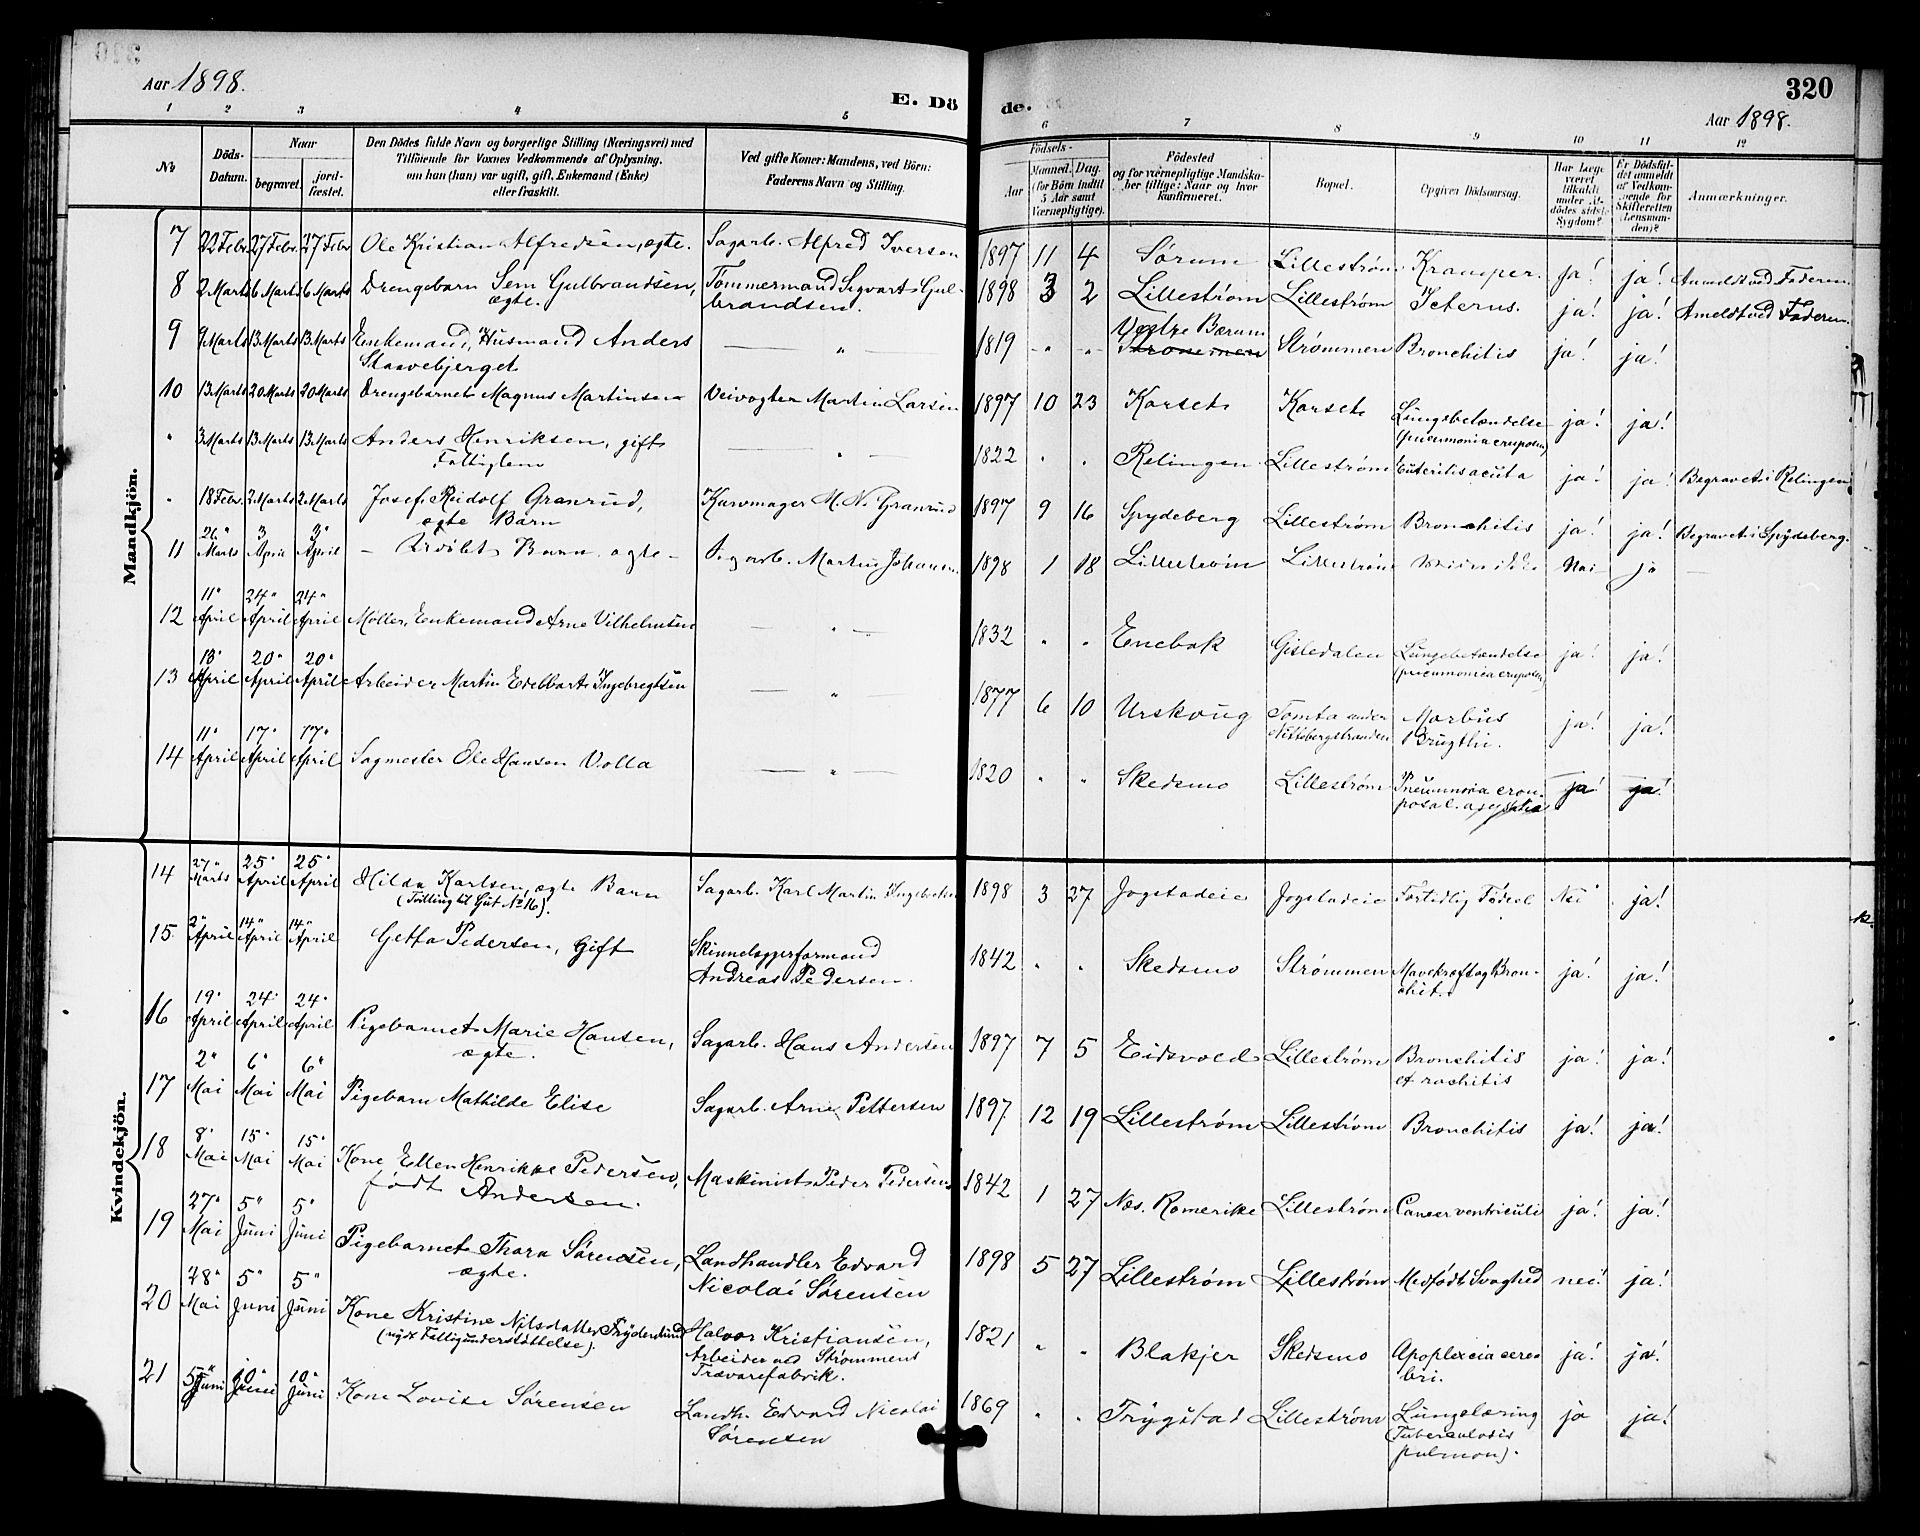 Aar 1898.
E. Dö
de.
320
Aar 1898.
1 2 3 4 5 6 7 8 9 10 11 12
No
Döds-Datum.
Naar
begravet.
jordfæstet.
Den Dödes fulde Navn og borgerlige Stilling (Næringsvei) med
Tilföiende for Voxnes Vedkommende af Oplysning.
om han (hun) var ugift, gift, Enkemand (Enke)
eller fraskilt.
Ved gifte Koner: Mandens, ved Börn:
Faderens Navn og Stilling.
Födsels-
Aar
Maaned. Dag.
(for Börn indtil
5 Aar samt
Værnepligtige).
Födested
og for værnepligtige Mandska-
ber tillige: Naar og hvor
konfirmeret.
Bopæl.
Opgiven Dödsaarsag.
Har Læge
været
tilkaldt
under
dödes sidste
Sygdom?
Er Dödsfal-
det anmeldt
af Vedkom-
mende for
Skifteretten
(Lensman-
den)?
Anmærkninger.
Mandkjön.
7 22 Febr. 27 Febr. 27 Febr Ole Kristian Alfredsen, ægte. Sagarb. Alfred Iversen 1897 11 4 Sørum Lillestrøm Kramper. Ja! ja! Anmeldt ved Faderen.
8 2 Marts 6 Marts 6 Marts Drengebarn Sem Gulbrandsen, Tømmermand Sigvart Gul- 1898 3 2 Lillestrøm Lillestrøm Icterus. ja! ja! Ameldt ved Faderen.
ægte. brandsen.
9 9 Marts 13 Marts 13 Marts Enkemand, Husmand Anders — " — 1819 " " Vestre Bærum Strømmen Bronchitis ja! ja!
Staavebjerget Strømmen
10 13 Marts 20 Marts 20 Marts Drengebarnet Magnus Martinsen Veivogter Martin Larsen 1897 10 23 Korset Korset Lungebetændelse ja! ja!
" 3 Marts 13 Marts 13 Marts Anders Henriksen, gift — " — 1822 " " Relingen Lillestrøm Enteritis acuta ja! ja! Begravet i Relingen
Fattiglem
" 18 Febr. 2 Marts 2 Marts Josef Reidolf Granrud, Kurvmager M. N. Granrud 1897 9 16 Spydeberg Lillestrøm Bronchitis ja! ja! Begravet i Spydeberg.
ægte Barn
11 26" Marts 3 April 3" April — Udøbt Barn ægte — Sagarb. Martin Johansen 1898 1 18 Lillestrøm Lillestrøm Nei ja
12 11" April 24" April 24" April Møller, Enkemand Arne Vilhelmsen — " — 1832 " " Enebak Gisledalen Lungebetændelse ja! ja!
13 13" April 20" April 20" April Arbeider Martin Edelbart Ingebregtsen — " — 1877 6 10 Urskoug Tomta under Morbus ja! ja!
Brugthi.
14 11" April 17" April 17" April Sagmester Ole Hansen Volla — " — 1820 " " Skedsmo Lillestrøm Pneumonia crou- ja! ja!
Kvindekjön.
14 27" Marts 25" April 25" April Hilda Karlsen, ægte Barn Sagarb. Karl Martin 1898 3 27 Jogstadeie Jogstadeie Fortidlig Fødsel Nei ja!
(Tvilling til Gut No 16).
15 2" April 14" April 14" April Getta Pedersen, Gift Skinnelæggerformand 1842 " " Skedsmo Strømmen Mavekræft og Bron- ja! ja!
Andreas Pedersen. chit.
16 19" April 24" April 24" April Pigebarnet Marie Hansen, Sagarb. Hans Andersen 1897 7 5 Eidsvold Lillestrøm Bronchitis ja! ja!
ægte. et rachitis
17 2" Mai 6" Mai 6" Mai Pigebarn Mathilde Elise Sagarb. Arne Pettersen 1897 12 19 Lillestrøm Lillestrøm Bronchitis ja! ja!
18 8" Mai 15" Mai 15" Mai Kone Ellen Henrikke Pedersen, Maskinist Peder Pedersen 1842 1 27 Næs. Romerike Lillestrøm Cancer ventriculi ja! ja!
født Andersen.
19 27" Mai 5" Juni 5" Juni Pigebarnet Thora Sørensen, Landhandler Edvard 1898 5 27 Lillestrøm Lillestrøm Medfødt Svaghed nei! ja!
ægte. Nicolai Sørensen
20 28" Mai 5" Juni 5" Juni Kone Kristine Nilsdatter Frydenlund Halvor Kristiansen, 1821 " " Blakjer Skedsmo Apoplexcia cere- ja! ja!
(nydt Fattigunderstøttelse). Arbeider ved Strømmens bri.
Trævarefabrik.
21 5" Juni 10" Juni 10" Juni Kone Lovise Sørensen Landh. Edvard Nicolai 1869 " " Trygstad Lillestrøm Lungetæring ja ja!
Sørensen (Tuberculosis
pulmon).